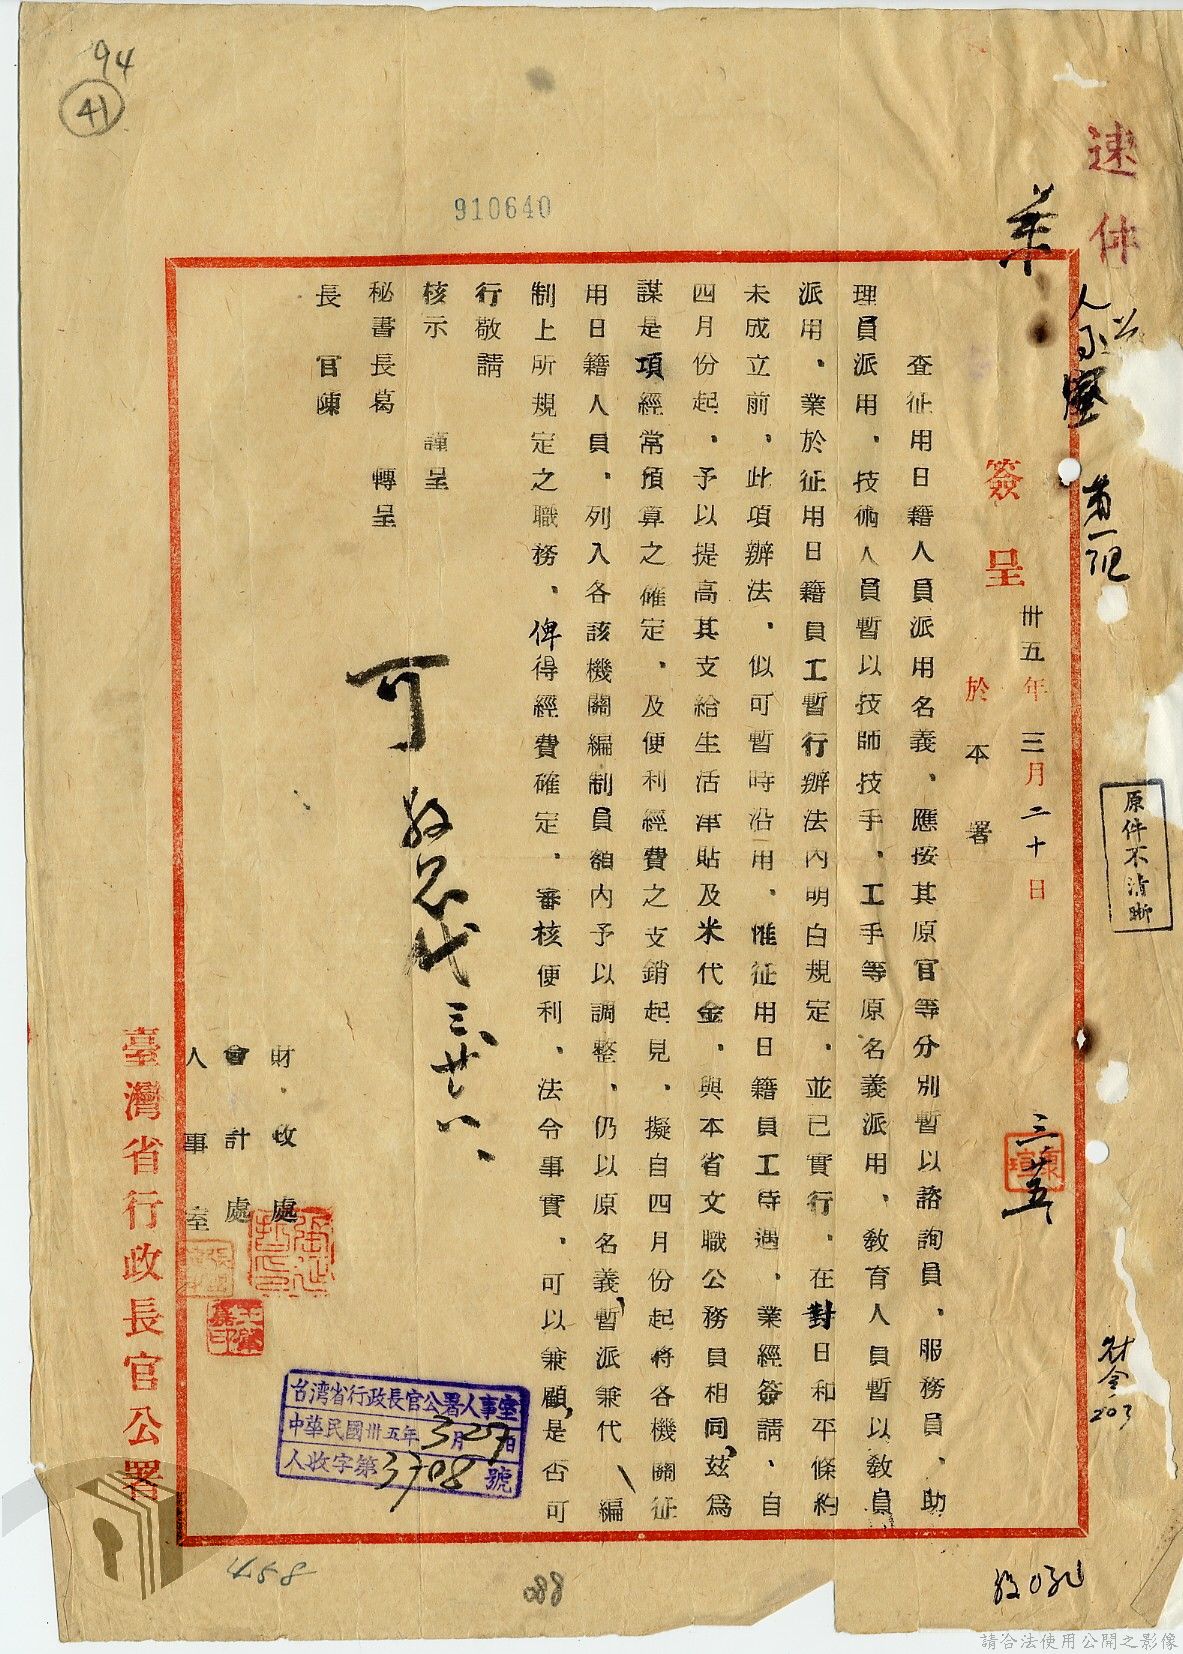 94
41
910640
速件
簽呈
卅五年三月二十日
於本署
查征用日籍人員派用名義、應按其原官等分別暫以諮詢員、服務員、助
理員派用、技術人員暫以技師技手、工手等原名義派用、教育人員暫以教員
派用、業於征用日籍員工暫行辦法內明白規定、並已實行、在對日和平條約
未成立前、此項辦法、似可暫時沿用、惟征用日籍員工待遇、業經簽請、自
四月份起、予以提高其支給生活津貼及米代金、與本省文職公務員相同、茲為
謀是項經常預算之確定、及便利經費之支銷起見、擬自四月份起將各機關征
用日籍人員、列入各該機關編制員額內予以調整、仍以原名義、暫派兼代、編
制上所規定之職務、俾得經費確定、審核便利、法令事實、可以兼顧、是否可
行敬請
核示　謹呈
秘書長葛　轉呈
長官陳
可
三、廿八、
財政處
會計處
人事室
臺灣省行政長官公署
台灣省行政長官公署人事室
中華民國卅五年3月27日
人收字第3708號
原件不清晰
人事室
第一組
三廿五
203
458
088
請合法使用公開之影像